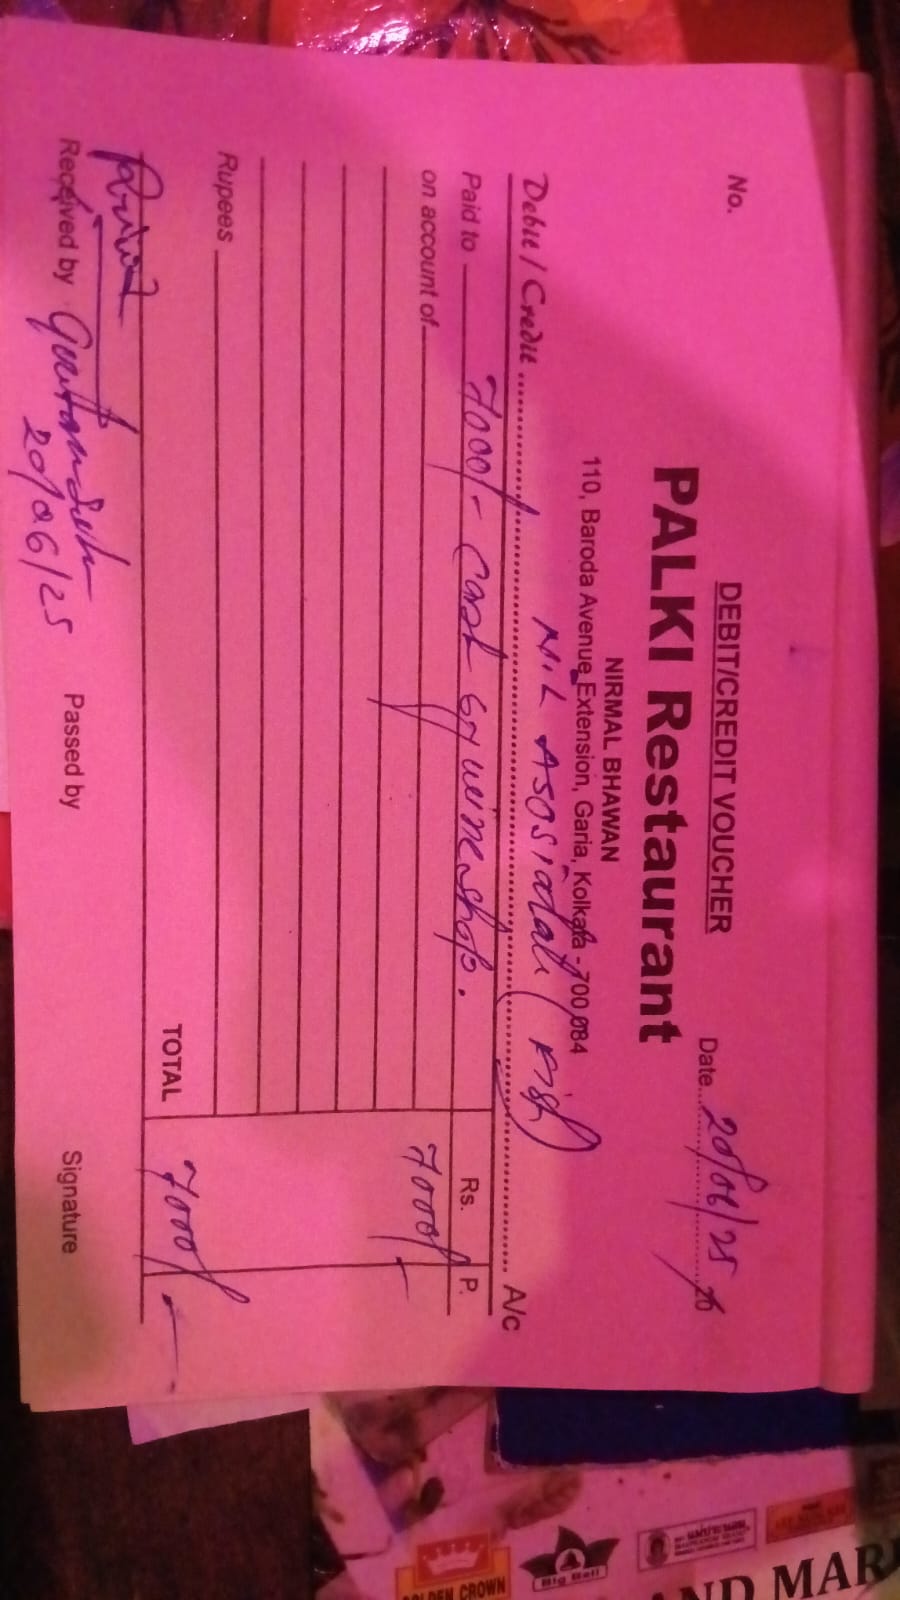 DEBIT/CREDIT VOUCHER
No.
Date 20/06/25 20
PALKI Restaurant
NIRMAL BHAWAN
110, Baroda Avenue Extension, Garia, Kolkata - 700 084
Debit / Credit N.L Asosiadate (Fish) A/c
Paid to 7000/- cash by wine shop.
Rs. P.
on account of
7000/-
Rupees
TOTAL 7000/-
Received by 20/06/25 Passed by Signature
GOLDEN CROWN
Big Bell
AND MAR